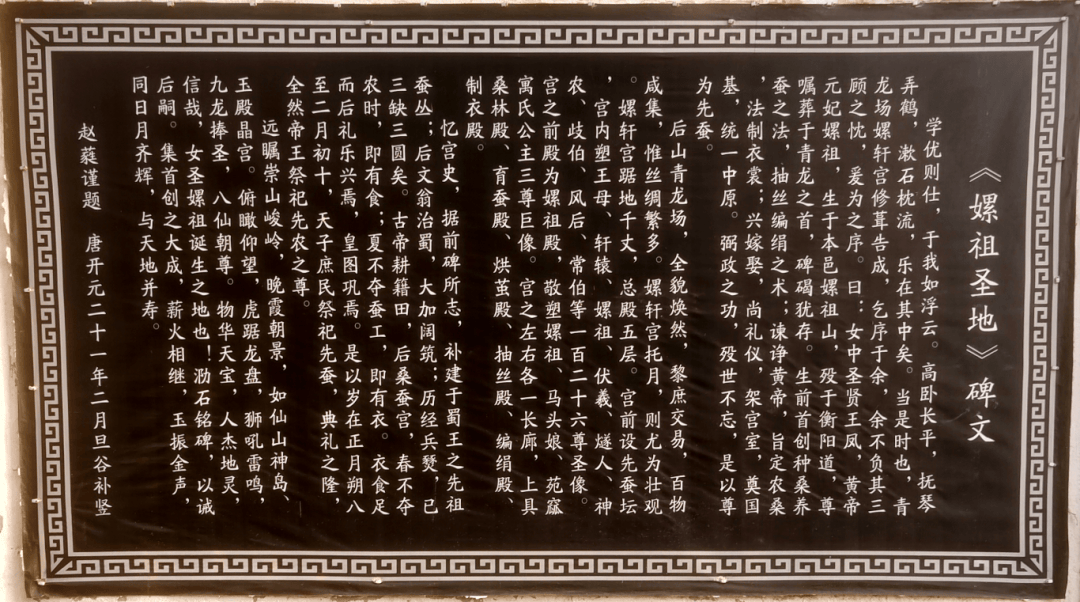 《嫘祖圣地》碑文
学优则仕，于我如浮云。高卧长平，抚琴
弄鹤，漱石枕流，乐在其中矣。当是时也，青
龙场嫘轩宫修葺告成，乞序于余，余不负其三
顾之忱，爰为之序。曰：女中圣贤王凤，黄帝
元妃嫘祖，生于本邑嫘祖山，殁于衡阳道，尊
嘱葬于青龙之首，碑碣犹存。生前首创种桑养
蚕之法，抽丝编绢之术；谏诤黄帝，旨定农桑
，法制衣裳；兴嫁娶，尚礼仪，架宫室，奠国
基，统一中原。弼政之功，殁世不忘，是以尊
为先蚕。
后山青龙场，全貌焕然，黎庶交易，百物
咸集，惟丝绸繁多。嫘轩宫托月，则尤为壮观
。嫘轩宫踞地千丈，总殿五层。宫前设先蚕坛
，宫内塑王母、轩辕、嫘祖、伏羲、燧人、神
农、歧伯、风后、常伯等一百二十六尊圣像。
宫之前殿为嫘祖殿，敬塑嫘祖、马头娘、苑窳
寓氏公主三尊巨像。宫之左右各一长廊，上具
桑林殿、育蚕殿、烘茧殿、抽丝殿、编绢殿、
制衣殿。
忆宫史，据前碑所志，补建于蜀王之先祖
蚕丛；后文翁治蜀，大加阔筑；历经兵燹，已
三缺三圆矣。古帝耕籍田，后桑蚕宫，春不夺
农时，即有食；夏不夺蚕工，即有衣。衣食足
而后礼乐兴焉，皇图巩焉。是以岁在正月朔八
至二月初十，天子庶民祭祀先蚕，典礼之隆，
全然帝王祭祀先农之尊。
远瞩崇山峻岭，晚霞朝景，如仙山神岛、
玉殿晶宫。俯瞰仰望，虎踞龙盘，狮吼雷鸣，
九龙捧圣，八仙朝尊。物华天宝，人杰地灵，
信哉，女圣嫘祖诞生之地也！泐石铭碑，以诫
后嗣。集首创之大成，薪火相继，玉振金声，
同日月齐辉，与天地并寿。
赵蕤谨题 唐开元二十一年二月旦谷补竖